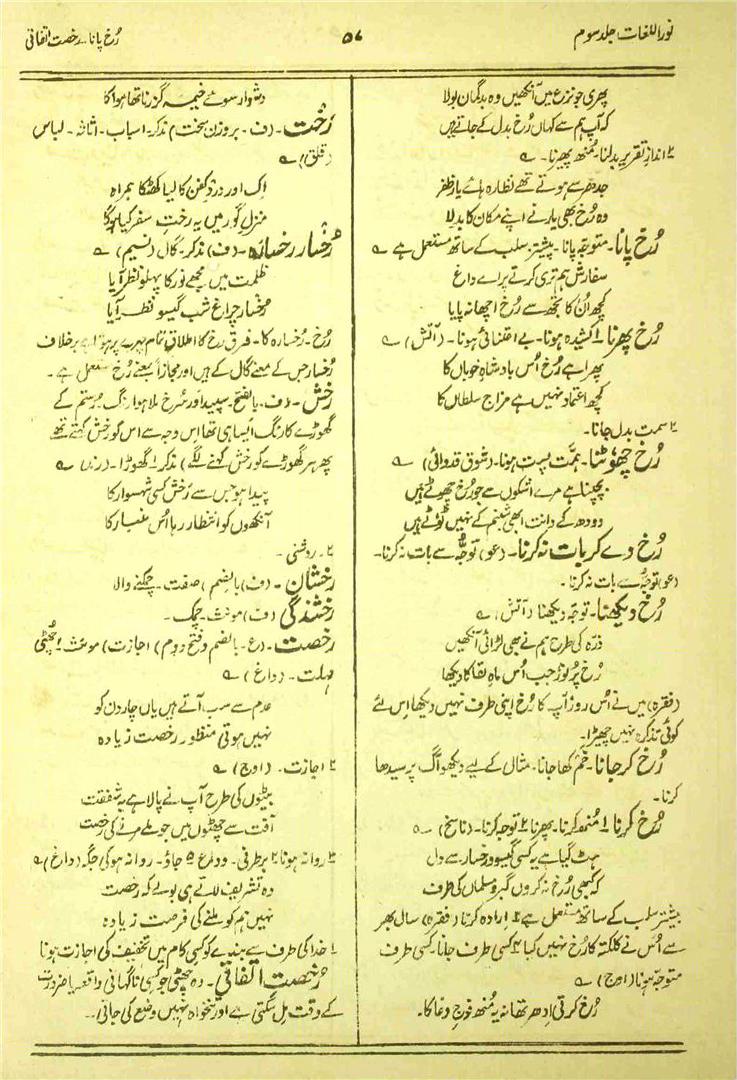 نور اللغات جلد سوم
۵۷
رُخ پانا۔ رخصت اتفاقی
پھری جو نزع میں آنکھیں وہ بدگمان بولا
کہ آپ ہم سے کہاں رُخ بدل کے جاتے ہیں
۲ اندازِ تقریر بدلنا۔ مُنھ پھیرنا۔ ؎
جدھر سے ہوتے تھے نظارہ ہاے یار ظفر
وہ رُخ بھی یار نے اپنے مکان کا بدلا
رُخ پانا۔ متوجہ پانا۔ بیشتر سلب کے ساتھ مستعمل ہے ؎
سفارش ہم تری کرتے پر اے داغ
کچھ اُن کا تجھ سے رُخ اچھا نہ پایا
رُخ پھرنا ۱ کشیدہ ہونا۔ بے اعتنائی ہونا۔ (آتش) ؎
پھرا ہے رُخ اُس بادشاہِ خوباں کا
کچھ اعتماد نہیں ہے مزاجِ سلطاں کا
۲ سمت بدل جانا۔
رُخ چھوٹنا۔ ہمّت پست ہونا۔ (شوق قدوائی) ؎
بچپنا ہے مرے اشکوں سے جو رُخ چھوٹے ہیں
دودھ کے دانت ابھی شبنم کے نہیں ٹوٹے ہیں
رُخ دے کر بات نہ کرنا۔ (عو) توجّہ سے بات نہ کرنا۔
(عو) توجّہ سے بات نہ کرنا۔
رُخ دیکھنا۔ توجہ دیکھنا (آتش) ؎
ذرّہ کی طرح ہم نے بھی لڑائی آنکھیں
رُخ پُر نور جب اُس ماہ لقا کا دیکھا
(فقرہ) میں نے اُس روز آپ کا رُخ اپنی طرف نہیں دیکھا اس لئے
کوئی تذکرہ نہیں چھیڑا۔
رُخ کر جانا۔ خم کھا جانا۔ مثال کے لیے دیکھو آگ پر سیدھا
کرنا۔
رُخ کرنا ۱ مُنھ کرنا۔ پھرنا ۲ توجہ کرنا۔ (ناسخ) ؎
ہٹ گیا ہے یہ کسی گیسو و رخسار سے دل
کہ کبھی رُخ نہ کروں گبر و مسلماں کی طرف
بیشتر سلب کے ساتھ مستعمل ہے ۳ ارادہ کرنا (فقرہ) سال بھر
سے اُس نے کلکتہ کا رُخ نہیں کیا ۴ کسی طرف جانا۔ کسی طرف
متوجّہ ہونا (اوج) ؎
رُخ کرتی اِدھر تھا نہ یہ مُنھ فوجِ دغا کا۔
دشوار سوئے خیمہ گزرنا تھا ہوا کا
رَخت۔ (ف۔ بروزن سخت) مذکر۔ اسباب۔ اثاثہ۔ لباس
(قلق) ؎
اِک اور دزدِ کفن کا لیا کھٹکا ہمراہ
منزلِ گور میں یہ رختِ سفر کیا ہوگا
رُخسار رخسارہ۔ (ف) مذکر۔ گال (نسیم) ؎
ظلمت میں مجھے نور کا پہلو نظر آیا
رخسار چراغِ شبِ گیسو نظر آیا
رُخ۔ رُخسارہ کا۔ فرق رخ کا اطلاق تمام چہرے پر ہوتا ہے برخلاف
رُخسار جس کے معنے گال کے ہیں اور مجازاً بمعنے رُخ مستعمل ہے۔
رخش۔ (ف۔ بالفتح۔ سپید اور سُرخ ملا ہوا رنگ۔ رستم کے
گھوڑے کا رنگ ایسا ہی تھا اس وجہ سے اس کو رخش کہتے تھے
پھر ہر گھوڑے کو رخش کہنے لگے) مذکر ۱ گھوڑا۔ (رند) ؎
پیدا ہو جس سے رَخش کسی شہسوار کا
آنکھوں کو انتظار رہا اُس غبار کا
۲۔ روشنی۔
رخشاں۔ (ف) (بالضم) صفت۔ چمکنے والا
رخشندگی (ف) مونث۔ چمک۔
رخصت۔ (ع۔ بالضم و فتح دوم) اجازت) مونث ۱ چُھٹّی
مہلت۔ (داغ) ؎
عدم سے سب آتے ہیں یاں چار دن کو
نہیں ہوتی منظور رخصت زیادہ
۲ اجازت۔ (اوج) ؎
بیٹوں کی طرح آپ نے پالا ہے بہ شفقت
آفت سے چھٹوں میں جو ملے مرنے کی رخصت
۳ روانہ ہونا ۴ برطرفی۔ وداع ۵ جاؤ۔ روانہ ہو کی جگہ (داغ) ؎
وہ تشریف لاتے ہی بولے کہ رخصت
نہیں ہم کو ملنے کی فرصت زیادہ
۶ خدا کی طرف سے بندے کو کسی کام میں تخفیف کی اجازت ہونا
رُخصت اتّفاقی۔ وہ چھٹی جو کسی ناگہانی واقعہ یا ضرورت
کے وقت مل سکتی ہے اور تنخواہ نہیں وضع کی جاتی۔۔